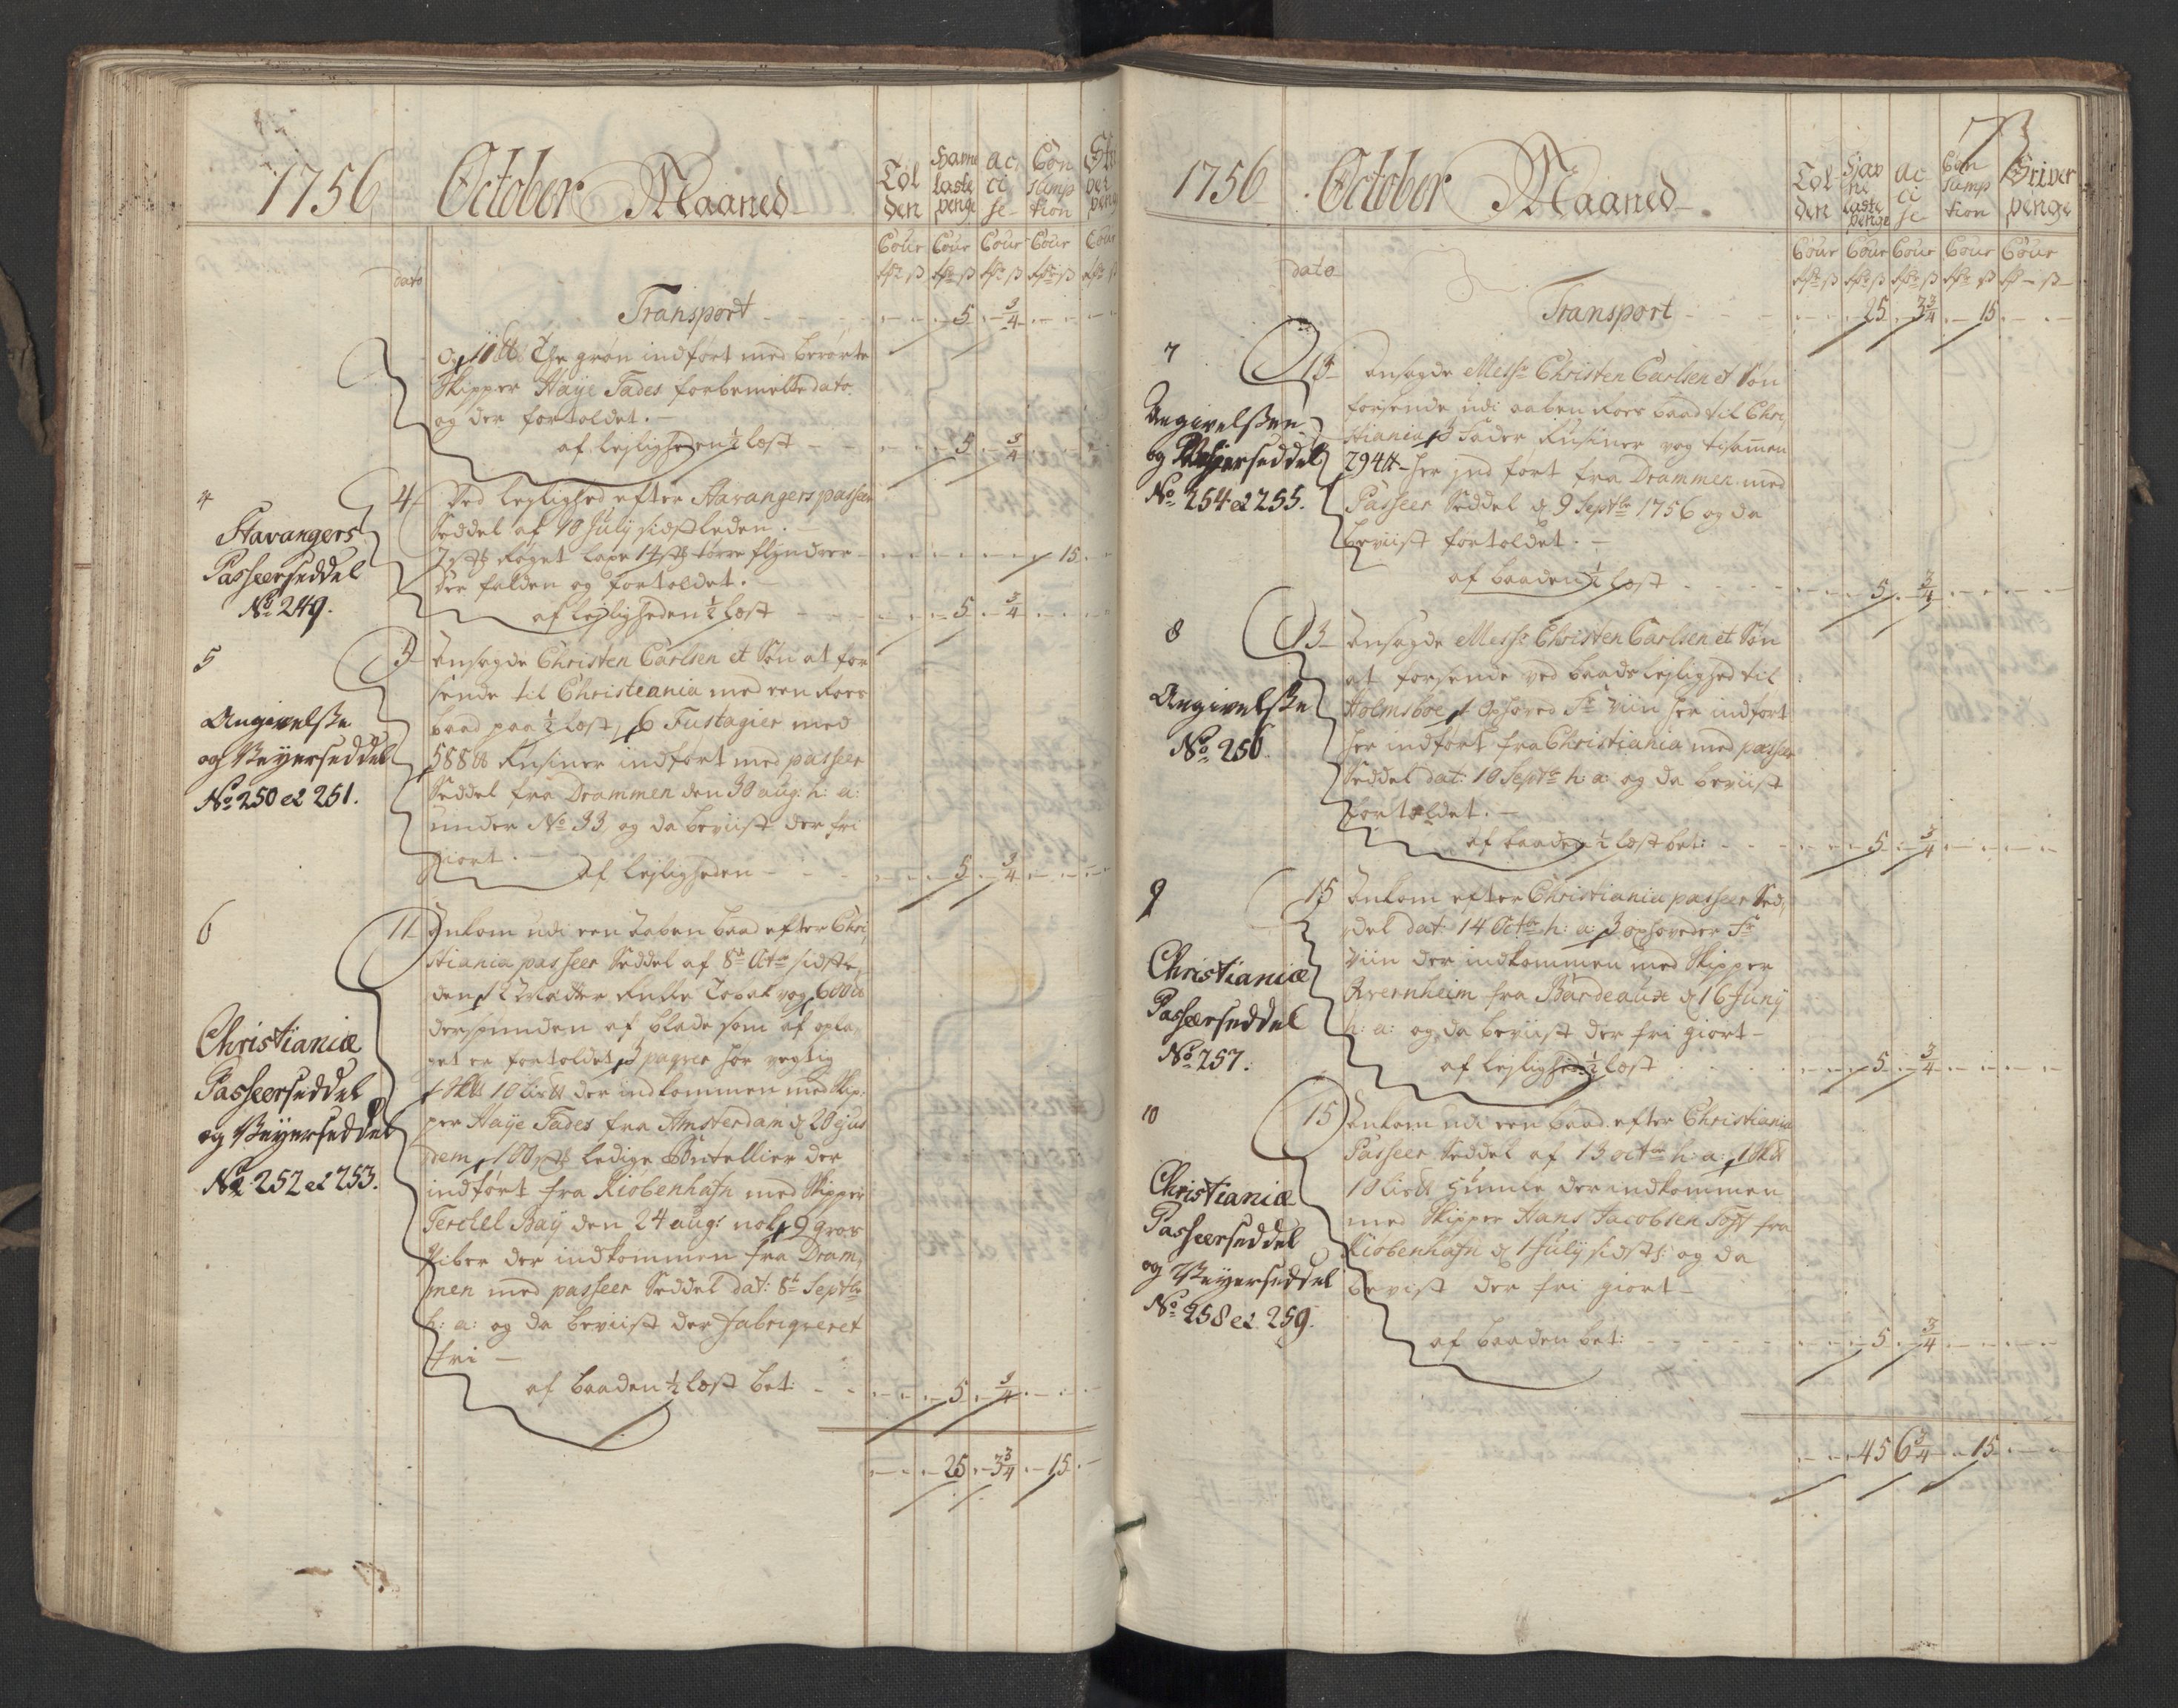 1756 October Maaned
Tolden
Havne laste penge
accise
Consumption
dato
Cour Cour Cour Cour Cour
Transport 5 3/4
og 10 ℔ The grøn indført med berørte
Skipper Haye Tades forbemelte dato
og der fortoldet.
af lejligheden ½ læst 5 3/4
4
Stavangers
Passeerseddel
No 249.
4 Ved lejlighed efter Stavangers passeer
Seddel af 10 July sidstleden.
røget lax 14 tørre flyndrer 15
der falden og fortoldet.
af lejligheden ½ læst 5 3/4
5
Angivelse
og Veyerseddel
No 250 et 251.
5 Ansagde Christen Carlsen et Søn at for
sende til Christiania med een Roers
baad paa ½ læst, 6 Fustagier med
588 ℔ Rusiner indført med passeer
Seddel fra Drammen den 30 aug: h: a:
under No 33, og da beviist der fri
giort.
af lejligheden 5 3/4
6
Christianiæ
Passeerseddel
og Veyerseddel
No 252 et 253.
11 Ankom udi een aaben baad efter Chri,
stiania passeer Seddel af 8de Octbr sidstle,
den, 12 Rulle Tobak vog 600 ℔
derspunden af blade som af opla,
get er fortoldet, 3 paqver hør vegtig
1 Sk℔ 10 Lis℔ der indkommen med Skip,
per Haye Tades fra Amsterdam d 20 ejus
dem, 100 ledige Boutellier der
indført fra Kiøbenhafn med Skipper
Terchel Bay den 24 aug: nok 9 gros
Piber der indkommen fra Dram,
men med passeer Seddel dat: 8de Septbr
h: a: og da beviist der fabriqveret
fri
af baaden ½ læst bet: 5 3/4
25 3 3/4 15
1756 October Maaned
73
Tolden
Havne laste penge
accise
Consumption
Skriver penge
dato
Cour Cour Cour Cour Cour
Transport 25 3 3/4 15
7
Angivelsen
og Veyerseddel
No 254 et 255.
13 Ansagde Messrs Christen Carlsen et Søn
forsende udi aaben Roers baad til Chri,
stiania 3 Fader Rusiner vog tilsamen
294 ℔ her ind ført fra Drammen med
Passeer Seddel d 9 Septbr 1756 og da
beviist fortoldet.
af baaden ½ læst 5 3/4
8
Angivelse
No 256
13 Ansagde Messrs Christen Carlsen et Søn
at forsende ved baads lejlighed til
Holmsboe 1 Oxhoved Fr Viin her indført
her indført fra Christiania med passeer
Seddel dat: 10 Septbr h: a: og da beviist
fortoldet.
af baaden ½ læst bet: 5 3/4
9
Christianiæ
Passeerseddel
No 257.
15 Ankom efter Christiania passeer Sed,
del dat: 14 Octbr h: a: 3 oxhoveder Fr
Viin der indkommen med Skipper
Avernheim fra Bordeaux d 16 Juny
h: a: og da beviist der fri giort
af lejligheden ½ læst 5 3/4
10
Christianiæ
Passeerseddel
og Veyerseddel
No 258 et 259.
15 Ankom udi een baad efter Christiania
Passeer Seddel af 13 octbr h: a: 1 Sk℔
10 Lis℔ Humle der indkommen
med Skipper Hans Jacobsen Toft fra
Kiøbenhafn d 1 July sidstl: og da
bevist der fri giort
af baaden bet: 5 3/4
45 6 3/4 15